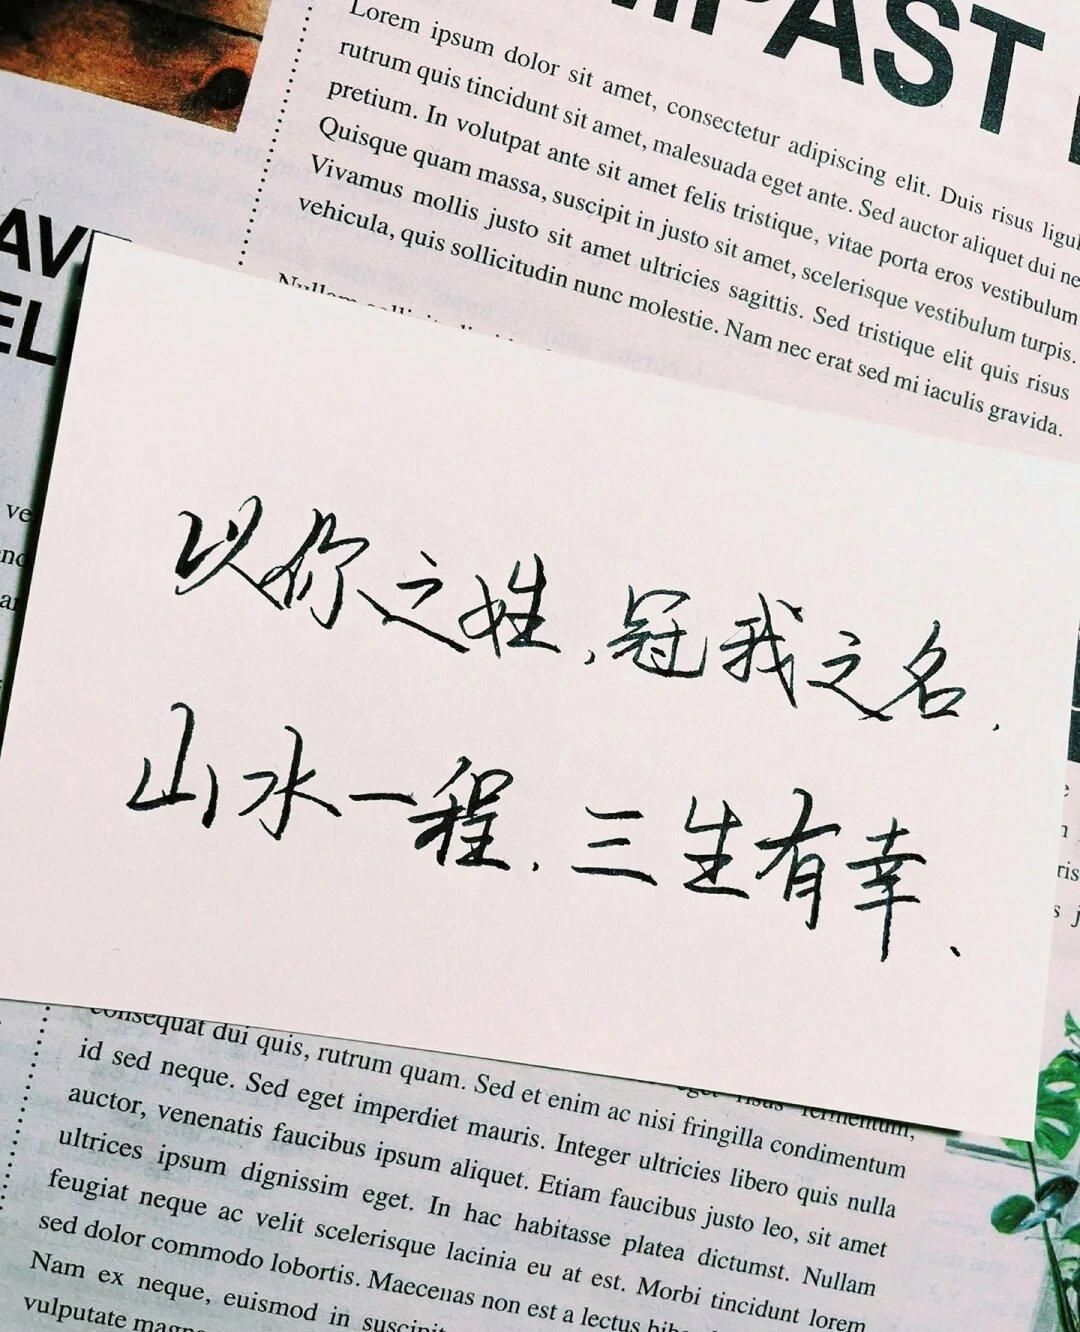 MPAST
Lorem ipsum dolor sit amet, consectetur adipiscing elit. Duis risus
rutrum quis tincidunt sit amet, malesuada eget ante. Sed auctor aliquet dui
pretium. In volutpat ante sit amet felis tristique, vitae porta eros vestibulum
Quisque quam massa, suscipit in justo sit amet, scelerisque vestibulum turpis.
Vivamus mollis justo sit amet ultricies sagittis. Sed tristique elit quis risus
vehicula, quis sollicitudin nunc molestie. Nam nec erat sed mi iaculis gravida.
AV
EL
以你之姓,冠我之名,
山水一程,三生有幸、
consequat dui quis, rutrum quam. Sed et enim ac nisi fringilla condimentum
id sed neque. Sed eget imperdiet mauris. Integer ultricies libero quis nulla
auctor, venenatis faucibus ipsum aliquet. Etiam faucibus justo leo, sit amet
ultrices ipsum dignissim eget. In hac habitasse platea dictumst. Nullam
feugiat neque ac velit scelerisque lacinia eu at est. Morbi tincidunt lorem
sed dolor commodo lobortis. Maecenas non est a lectus
Nam ex neque, euismod in suscipit
vulputate